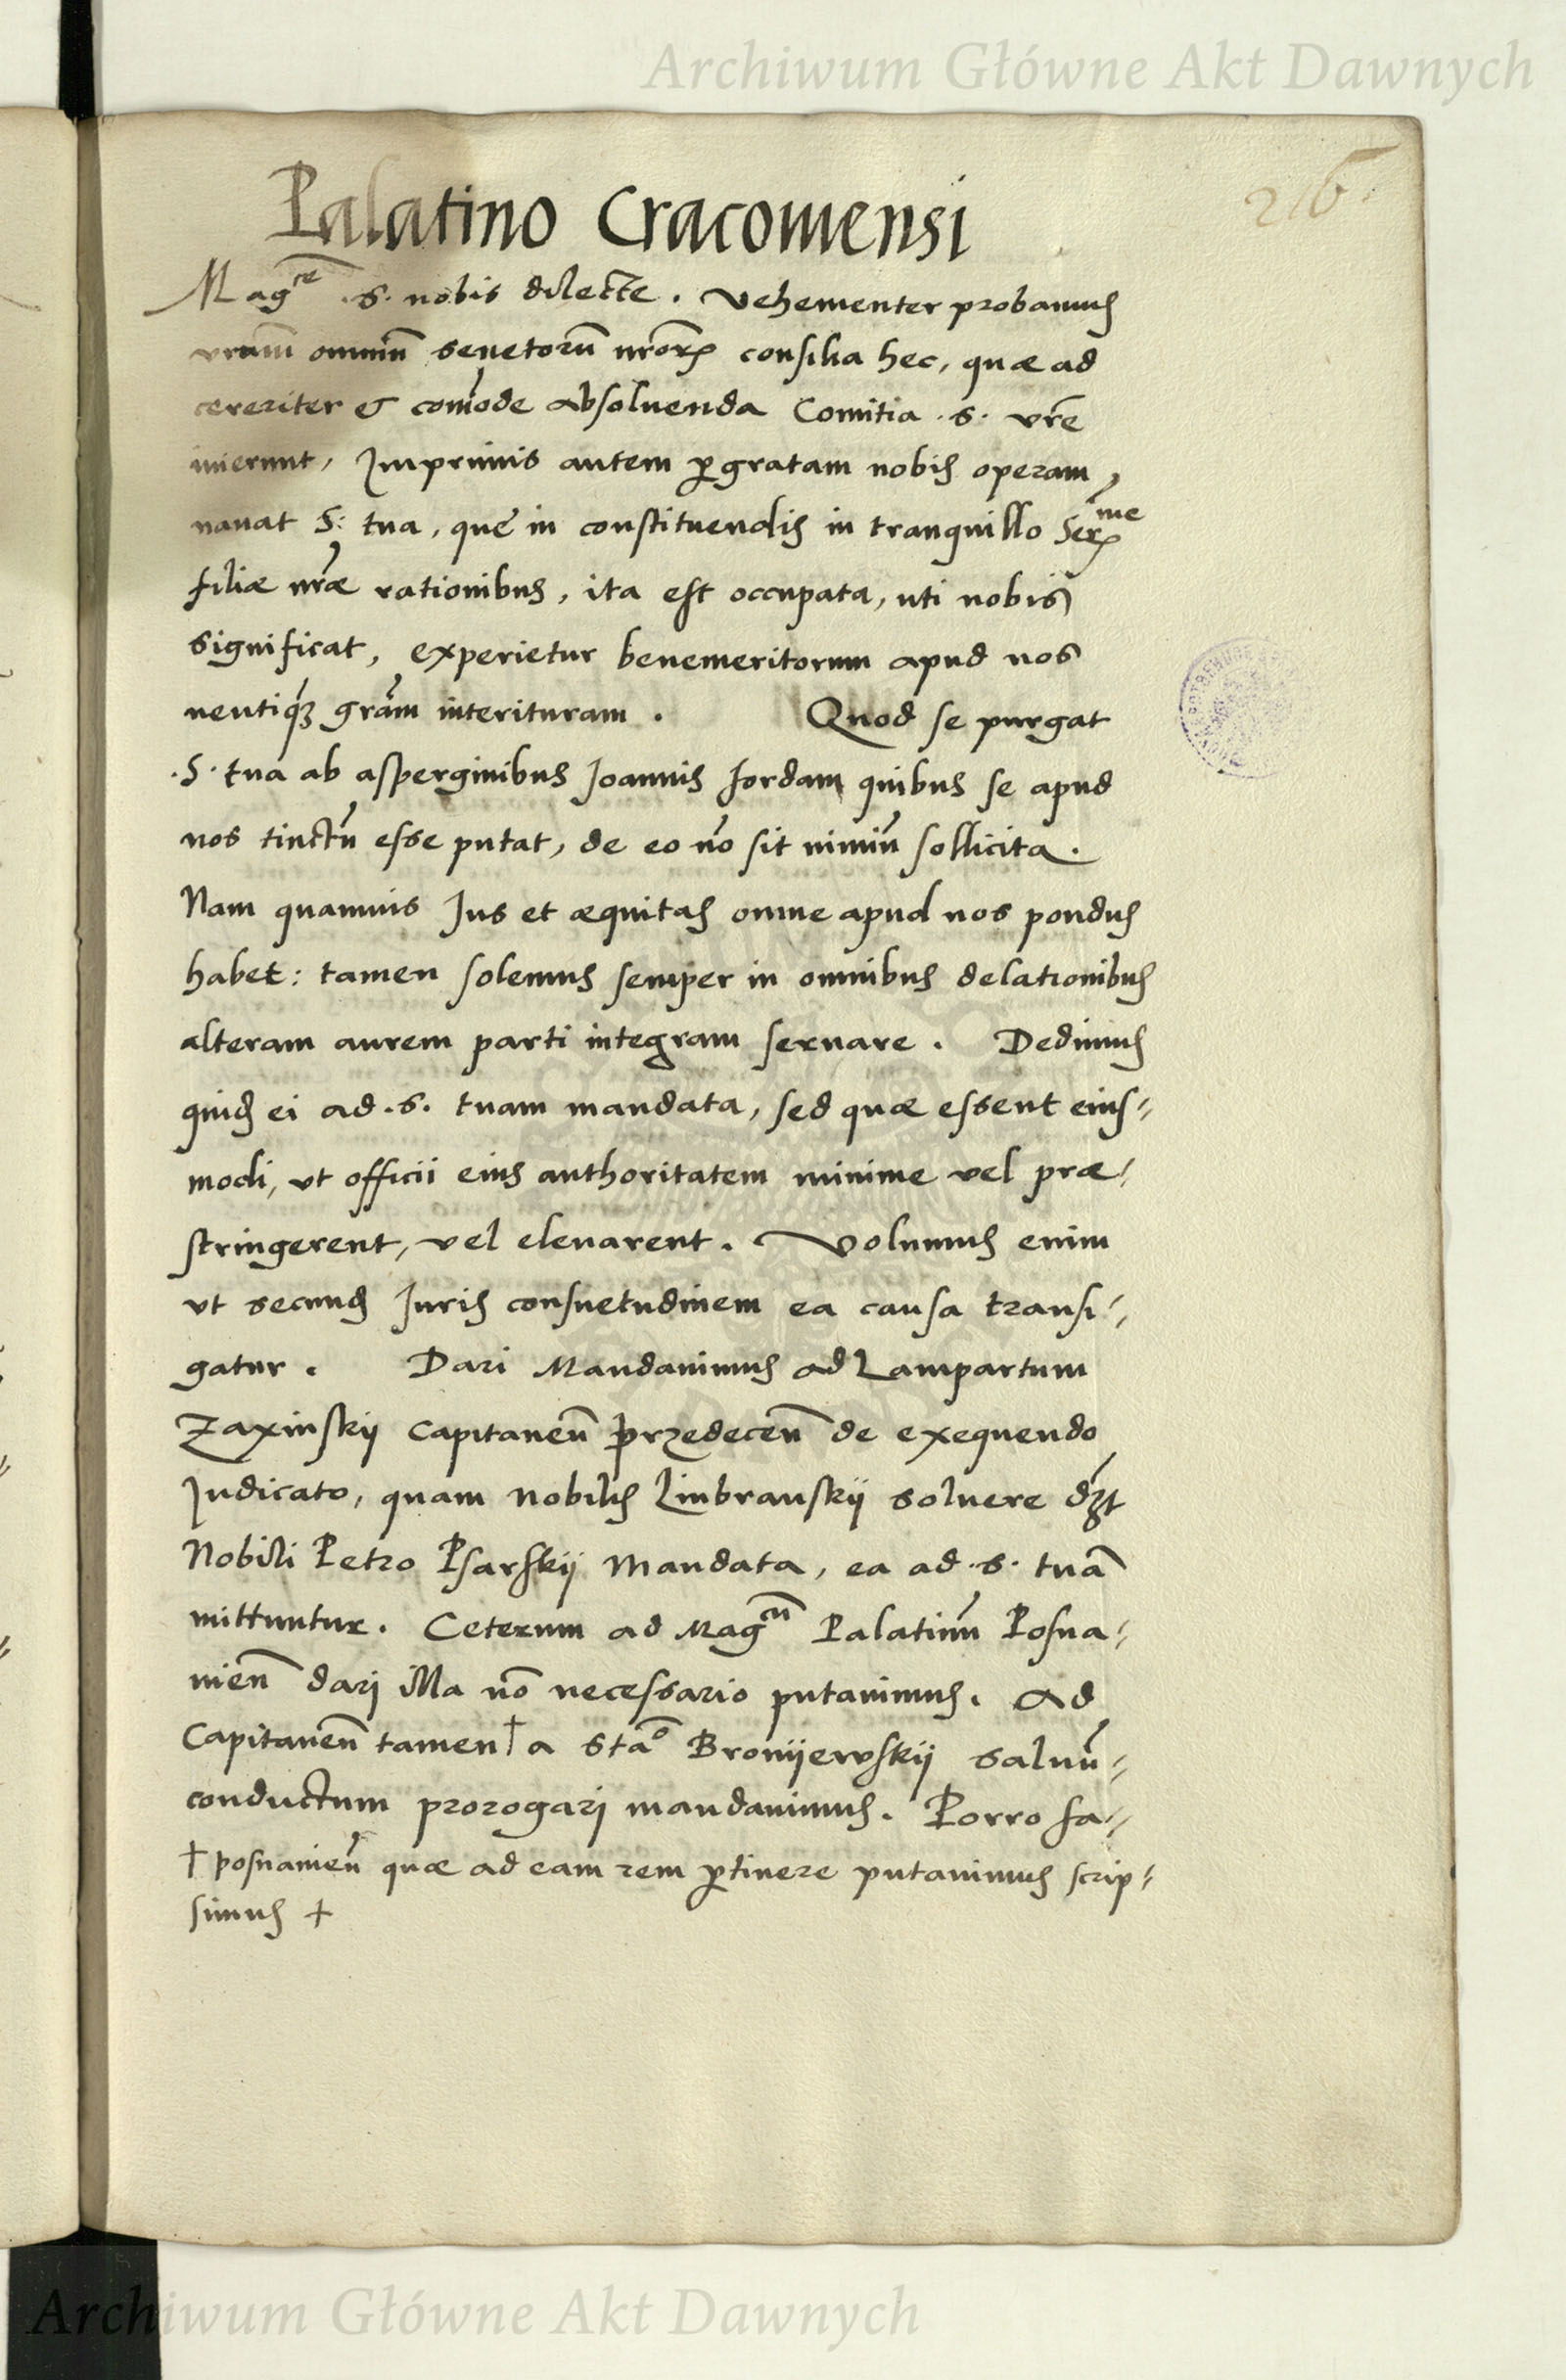 Archiwum Główne Akt Dawnych
216.
Palatino Cracouiensi
Mag^ce .S. nobis dilecte. Vehementer probamus
vram̄ omniū senetorū nrōrꝝ consilia hec, quæ ad
cereriter & com̄ode absoluenda Comitia .S. vrē
inierunt, Imprimis autem ꝑgratam nobis operam
nauat S: tua, quę in constituendis in tranquillo Serꝝ^me
filiæ nrǣ rationibus, ita est occupata, uti nobis
significat, experietur benemeritorum apud nos
neutiqꝫ grām interituram. Quod se purgat
.S. tua ab asperginibus Joannis Jordam quibus se apud
nos tinctū esse putat, de eo nō sit nimiū sollicita.
Nam quamuis Jus et æquitas omne apud nos pondus
habet: tamen solemus semper in omnibus delationibus
alteram aurem parti integram seruare. Dedimus
quidꝫ ei ad .S. tuam mandata, sed quæ essent eius-
modi, vt officii eius authoritatem minime vel præ-
stringerent, vel eleuarent. Volumus enim
vt secundꝫ Juris consuetudinem ea causa transi-
gatur. Dari Mandauimus ad Lampartum
Zaxinskij Capitaneū przedeceń de exequendo
Judicato, quam Nobilis Linbranskij soluere dꝫt
Nobili Petro Psarskij Mandata, ea ad .S. tuā
mittuntur. Ceterum ad Mag^cū Palatinū Posna-
nień dari illa nō necessario putauimus. Ad
Capitaneū tamen † a Stā^o Bronijewskij saluū-
conductum prorogari mandauimus. Porro fa-
† posnanień quæ ad eam rem ꝑtinere putauimus scrip-
simus +
Archiwum Główne Akt Dawnych